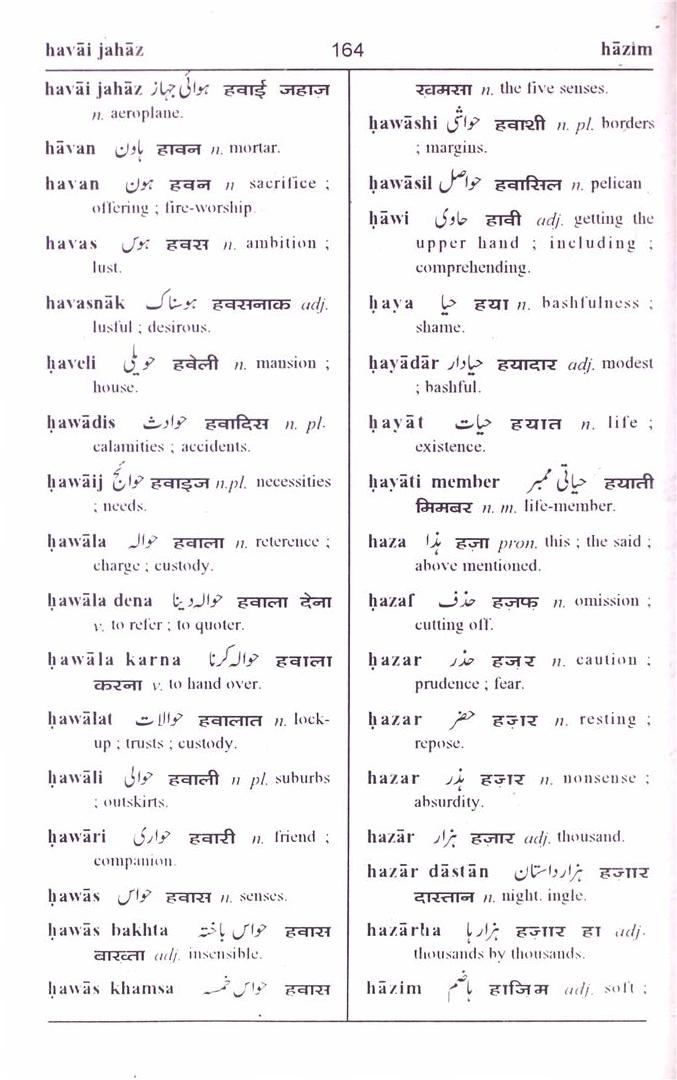 havāi jahāz 164 hāzim
havāi jahāz ہوائی جہاز हवाई जहाज़
n. aeroplane.
hāvan ہاون हावन n. mortar.
havan ہون हवन n sacrifice ;
offering ; fire-worship.
havas ہوس हवस n. ambition ;
lust.
havasnāk ہوسناک हवसनाक adj.
lustful ; desirous.
ḥaveli حویلی हवेली n. mansion ;
house.
ḥawādis حوادث हवादिस n. pl.
calamities ; accidents.
ḥawāij حوائج हवाइज n.pl. necessities
; needs.
ḥawāla حوالہ हवाला n. reterence ;
charge ; custody.
ḥawāla dena حوالہ دینا हवाला देना
v. to refer ; to quoter.
ḥawāla karna حوالہ کرنا हवाला
करना v. to hand over.
ḥawālat حوالات हवालात n. lock-
up ; trusts ; custody.
ḥawāli حوالی हवाली n pl. suburbs
; outskirts.
ḥawāri حواری हवारी n. friend ;
companion.
ḥawās حواس हवास n. senses.
ḥawās bakhta حواس باختہ हवास
वाख्ता adj. insensible.
ḥawās khamsa حواس خمسہ हवास
खमसा n. the five senses.
ḥawāshi حواشی हवाशी n. pl. borders
; margins.
ḥawāsil حواصل हवासिल n. pelican
ḥāwi حاوی हावी adj. getting the
upper hand ; including ;
comprehending.
ḥaya حیا हया n. bashfulness ;
shame.
ḥayādār حیادار हयादार adj. modest
; bashful.
ḥayāt حیات हयात n. life ;
existence.
ḥayāti member حیاتی ممبر हयाती
मिमबर n. m. life-member.
haza ہذا हज़ा pron. this ; the said ;
above mentioned.
ḥazaf حذف हज़फ़ n. omission ;
cutting off.
ḥazar حذر हज़र n. caution ;
prudence ; fear.
ḥazar حضر हज़र n. resting ;
repose.
hazar ہذر हज़र n. nonsense ;
absurdity.
hazār ہزار हज़ार adj. thousand.
hazār dāstān ہزار داستان हज़ार
दास्तान n. night. ingle.
hazārha ہزارہا हज़ार हा adj.
thousands by thousands.
hāzim ہاضم हाज़िम adj. soft ;